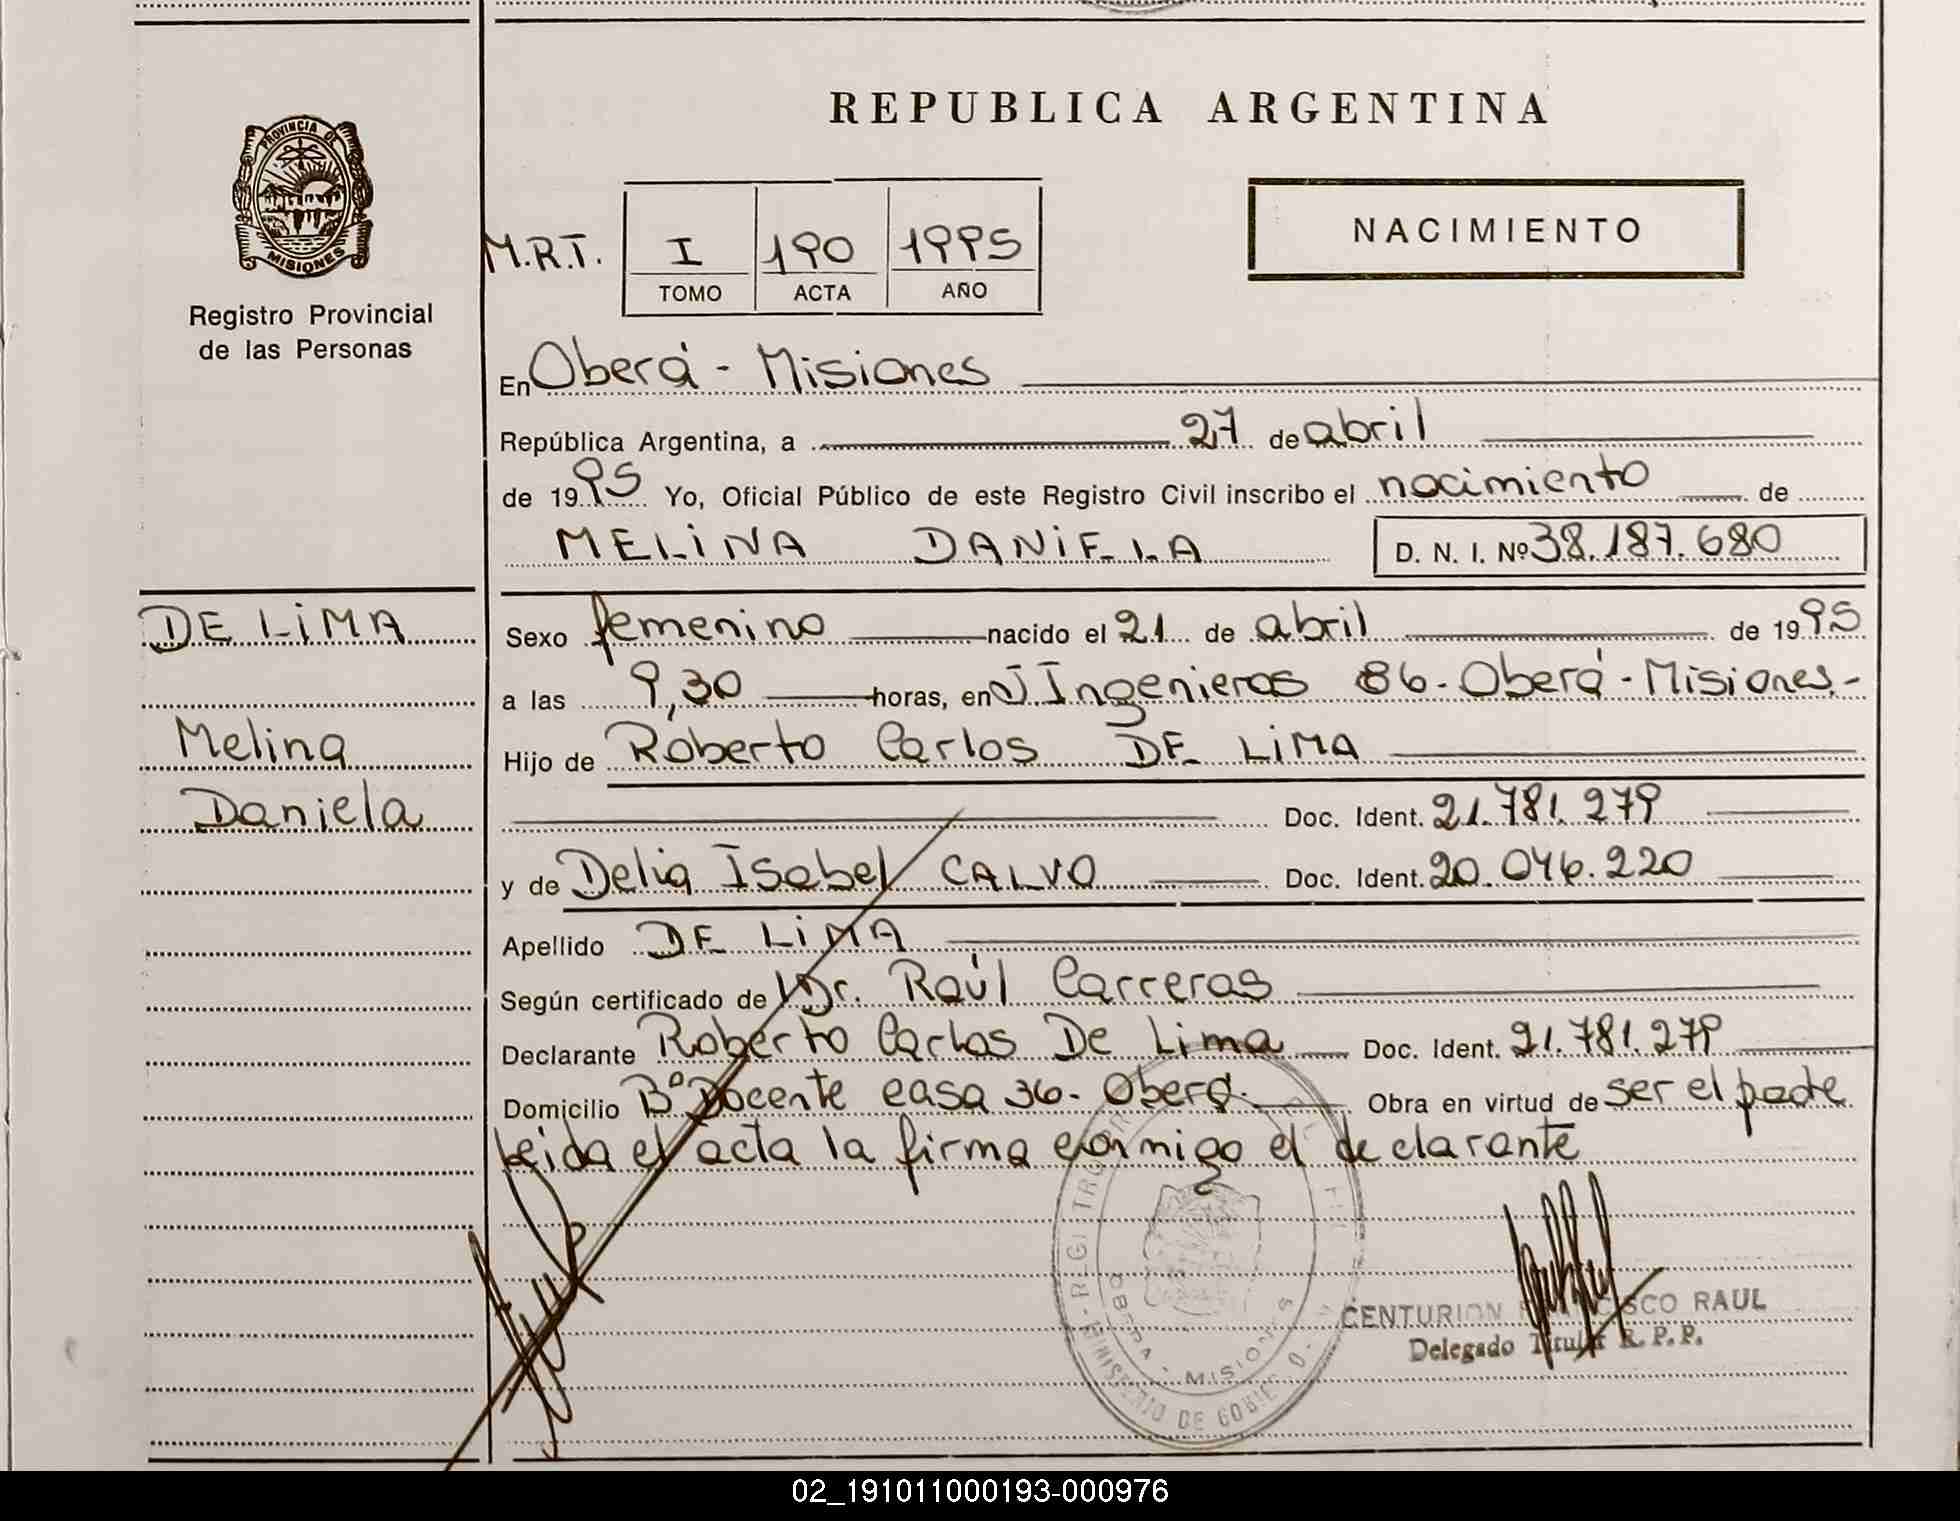 REPUBLICA ARGENTINA
PROVINCIA DE
MISIONES
Registro Provincial
de las Personas
NACIMIENTO
M.R.T. I 190 1995
TOMO ACTA AÑO
En Oberá - Misiones
República Argentina, a 27 de abril
de 1995 Yo, Oficial Público de este Registro Civil inscribo el nacimiento de
MELINA DANIELA D. N. I. Nº 38.187.680
DE LIMA
Melina
Daniela
Sexo femenino nacido el 21 de abril de 1995
a las 9,30 horas, en J Ingenieros 86 - Oberá - Misiones.-
Hijo de Roberto Carlos DE LIMA
Doc. Ident. 21.781.279
y de Delia Isabel CALVO Doc. Ident. 20.046.220
Apellido DE LIMA
Según certificado de Dr. Raúl Carreras
Declarante Roberto Carlos De Lima Doc. Ident. 21.781.279
Domicilio Bº Docente casa 36 - Oberá. Obra en virtud de ser el padre
Leida el acta la firma conmigo el declarante
OBERA - MISIONES
MINISTERIO DE GOBIERNO
CENTURION FRANCISCO RAUL
Delegado Titular R.P.P.
02_191011000193-000976